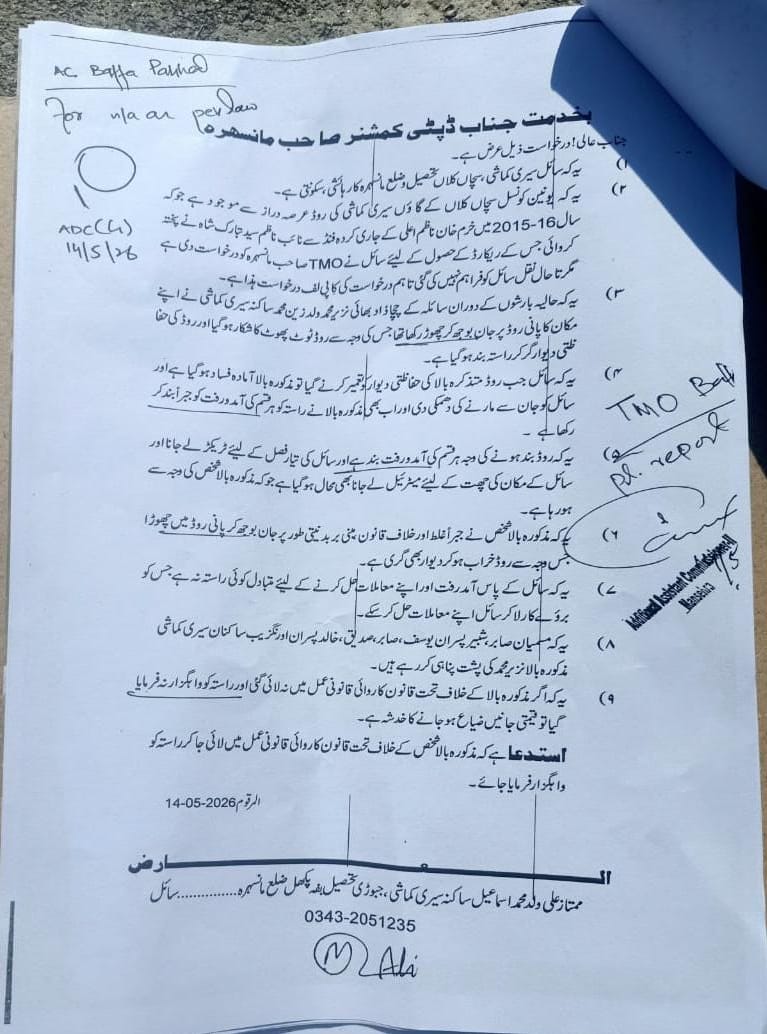 AC Baffa Pakhal
For n/a as per law
ADC(G)
14/5/26
بخدمت جناب ڈپٹی کمشنر صاحب مانسہرہ
جناب عالی! درخواست ذیل عرض ہے۔
۱) یہ کہ سائل سیری کماشی، سچاں کلاں تحصیل وضلع مانسہرہ کا رہائشی، سکونتی ہے۔
۲) یہ کہ یونین کونسل سچاں کلاں کے گاؤں سیری کماشی کی روڈ عرصہ دراز سے موجود ہے جو کہ
سال 16-2015 میں خرم خان ناظم اعلی کے جاری کردہ فنڈ سے نائب ناظم سید تبارک شاہ نے پختہ
کروائی جس کے ریکارڈ کے حصول کے لیئے سائل نے TMO صاحب مانسہرہ کو درخواست دی ہے
مگر تا حال نقل سائل کو فراہم نہیں کی گئی تاہم درخواست کی کاپی لف درخواست ہذا ہے۔
۳) یہ کہ حالیہ بارشوں کے دوران سائلہ کے چچا ذاد بھائی نزیر محمد ولد زین محمد ساکنہ سیری کماشی نے اپنے
مکان کا پانی روڈ پر جان بوجھ کر چھوڑ رکھا تھا جس کی وجہ سے روڈ ٹوٹ پھوٹ کا شکار ہو گیا اور روڈ کی حفا
ظتی دیوار گر کر راستہ بند ہو گیا ہے۔
۴) یہ کہ سائل جب روڈ متذکرہ بالا کی حفاظتی دیوار کو تعمیر کرنے گیا تو مذکورہ بالا آمادہ فساد ہو گیا ہے اور
سائل کو جان سے مارنے کی دھمکی دی اور اب بھی مذکورہ بالا نے راستہ کو ہر قسم کی آمد و رفت کو جبراً بند کر
رکھا ہے۔
TMO Baffa
pl. report
۵) یہ کہ روڈ بند ہونے کی وجہ ہر قسم کی آمد و رفت بند ہے اور سائل کی تیار فصل کے لیئے ٹریکٹر لے جانا اور
سائل کے مکان کی چھت کے لیئے میٹریل لے جانا بھی محال ہو گیا ہے جو کہ مذکورہ بالا شخص کی وجہ سے
ہو رہا ہے۔
۶) یہ کہ مذکورہ بالا شخص نے جبراً غلط اور خلاف قانون مبنی بر بدنیتی طور پر جان بوجھ کر پانی روڈ میں چھوڑا
جس وجہ سے روڈ خراب ہو کر دیوار بھی گری ہے۔
Additional Assistant Commissioner-II
Mansehra
۷) یہ کہ سائل کے پاس آمد و رفت اور اپنے معاملات حل کرنے کے لیئے متبادل کوئی راستہ نہ ہے جس کو
بروئے کار لا کر سائل اپنے معاملات حل کر سکے۔
۸) یہ کہ مسمیان صابر، شبیر پسران یوسف، صابر، صدیق، خالد پسران اورنگزیب ساکنان سیری کماشی
مذکورہ بالا نزیر محمد کی پشت پناہی کر رہے ہیں۔
۹) یہ کہ اگر مذکورہ بالا کے خلاف تحت قانون کاروائی قانونی عمل میں نہ لائی گئی اور راستہ کو واگزار نہ فرمایا
گیا تو قیمتی جانیں ضیاع ہو جانے کا خدشہ ہے۔
استدعا ہے کہ مذکورہ بالا شخص کے خلاف تحت قانون کاروائی قانونی عمل میں لائی جا کر راستہ کو
واگزار فرمایا جائے۔
المرقوم 14-05-2026
العارض
ممتاز علی ولد محمد اسماعیل ساکنہ سیری کماشی، جبوڑی تحصیل بفہ پکھل ضلع مانسہرہ..............سائل
0343-2051235
M Ali